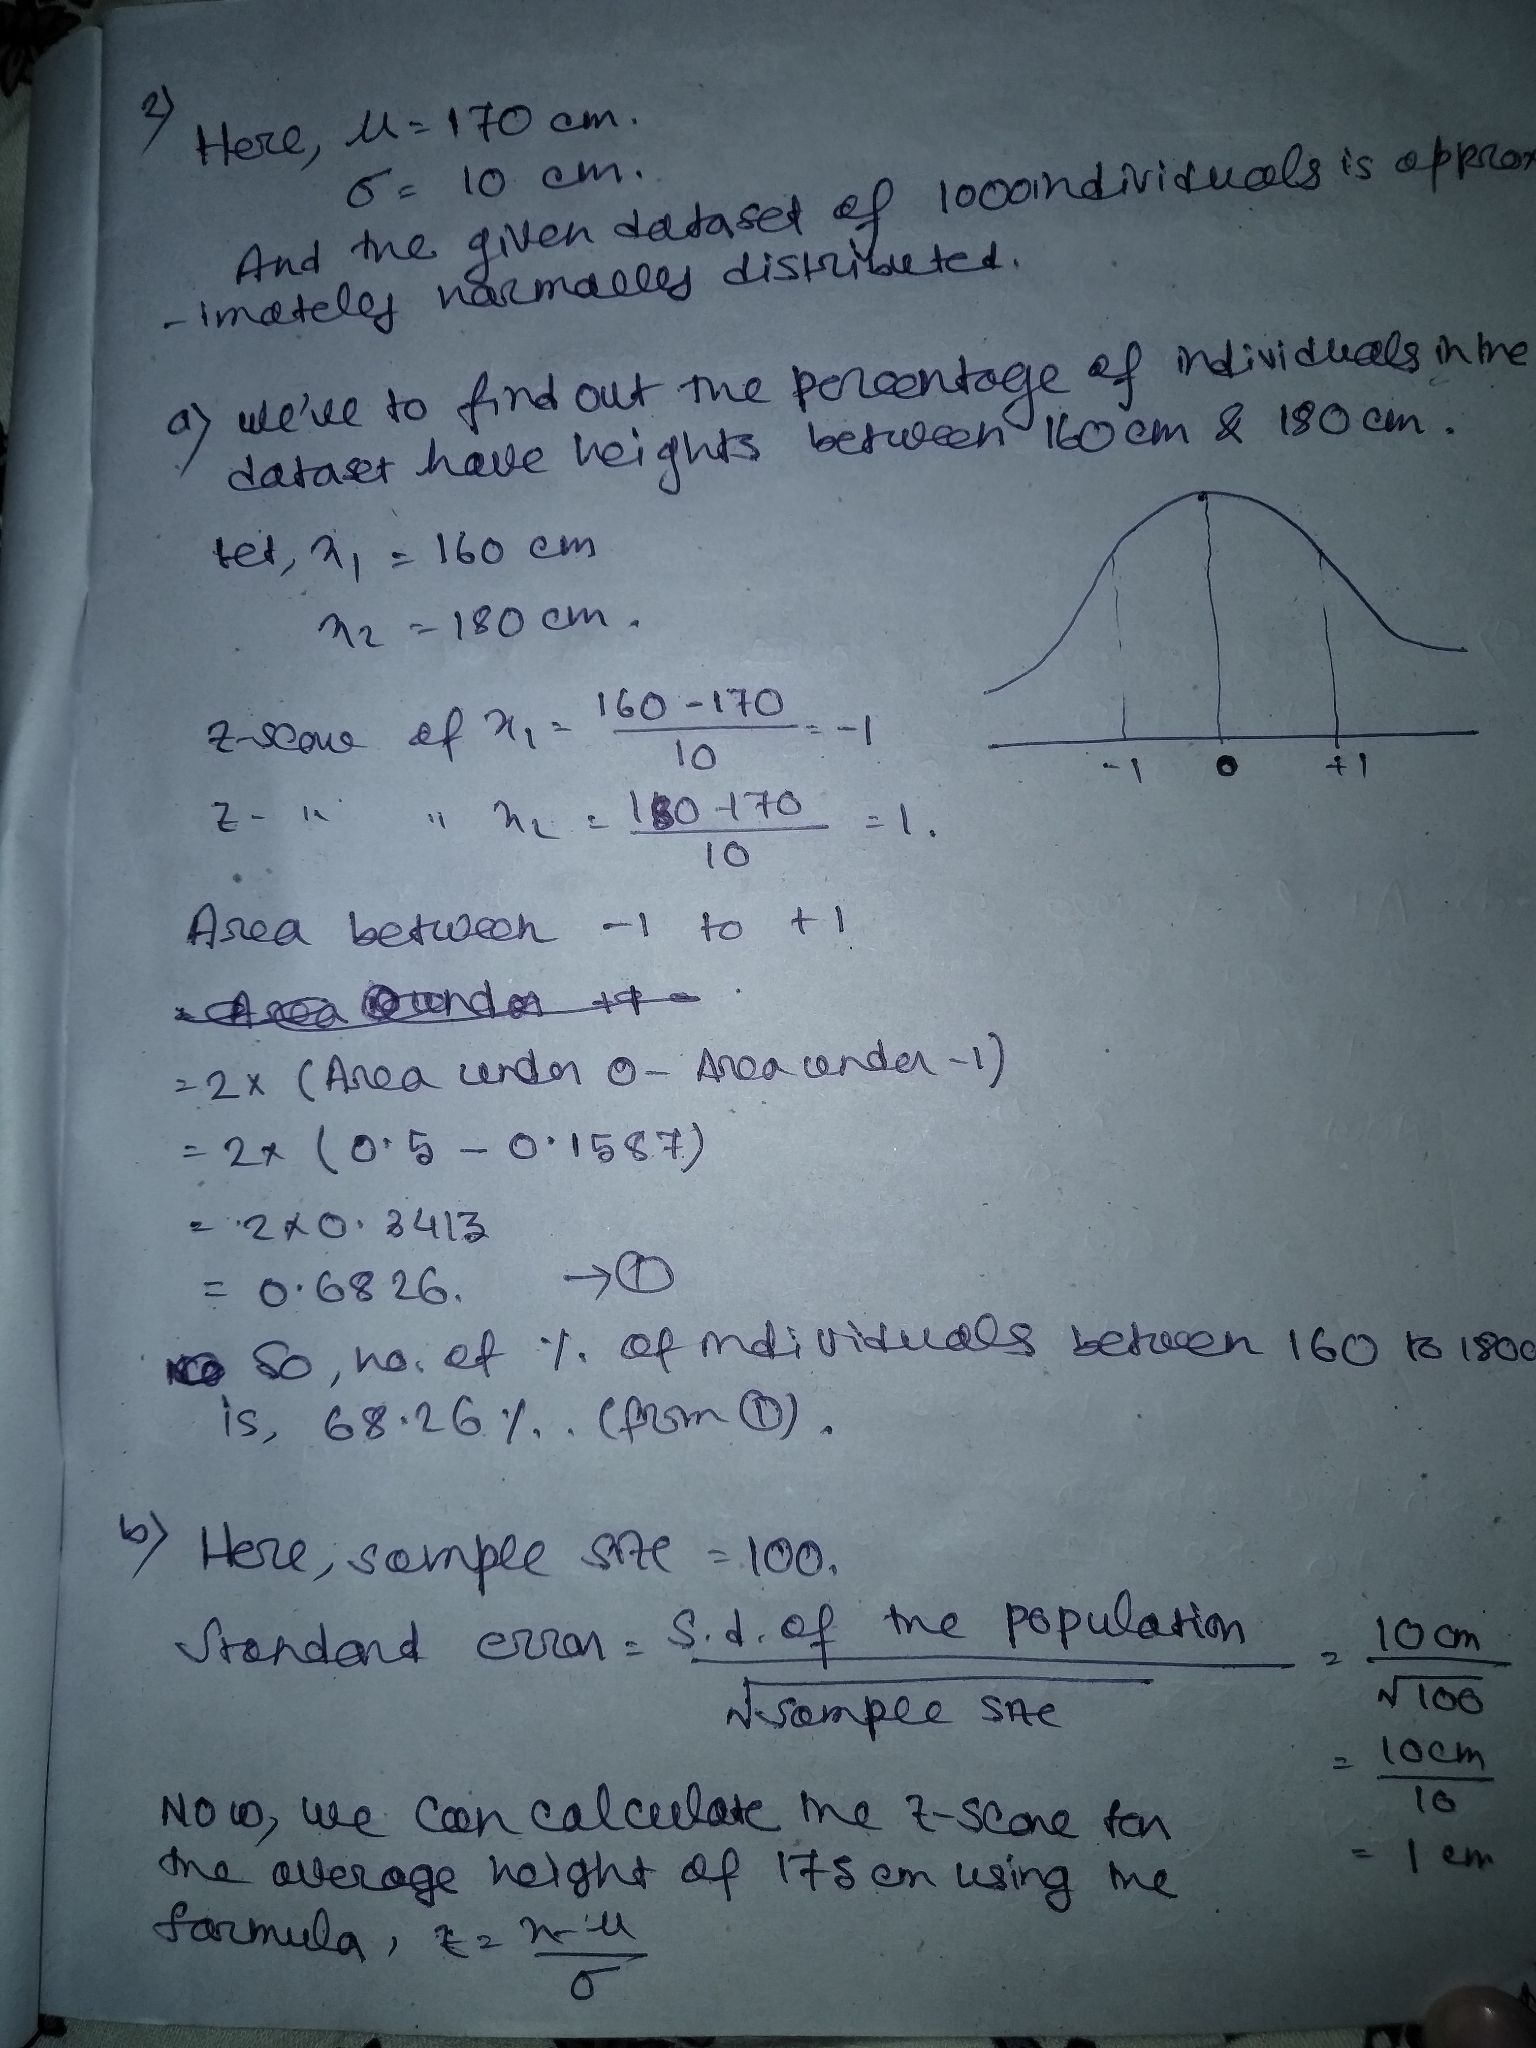 2)
Here, μ = 170 cm.
σ = 10 cm.
And the given dataset of 1000 individuals is approx
-imately normally distributed.
a) we've to find out the percentage of individuals in the
dataset have heights between 160 cm & 180 cm.
Let, x₁ = 160 cm
x₂ = 180 cm.
z-score of x₁ = (160 - 170)/10 = -1
z- " " x₂ = (180 - 170)/10 = 1.
-1 0 +1
Area between -1 to +1
= 2x (Area under 0 - Area under -1)
= 2x (0.5 - 0.1587)
= 2x0.3413
= 0.6826. → ①
So, no. of % of individuals between 160 to 180c
is, 68.26%. (from ①).
b) Here, sample size = 100.
Standard error = S.d. of the population/√sample size = 10cm/√100
= 10cm/10
= 1 cm
Now, we can calculate the z-score for
the average height of 175 cm using the
formula, z = (x-μ)/σ